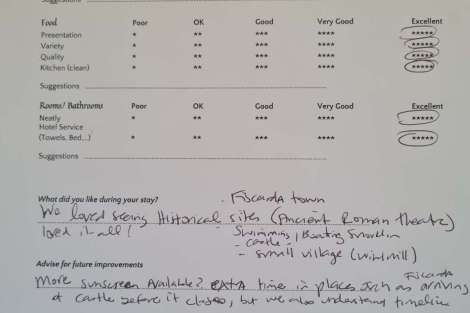 Suggestions
Food Poor OK Good Very Good Excellent
Presentation * ** *** **** *****
Variety * ** *** **** *****
Quality * ** *** **** *****
Kitchen (clean) * ** *** **** *****
Suggestions
Rooms/ Bathrooms Poor OK Good Very Good Excellent
Neatly * ** *** **** *****
Hotel Service
(Towels, Bed...) * ** *** **** *****
Suggestions
What did you like during your stay? · Fiscarda town
We loved seeing Historical sites (Ancient Roman Theatre)
loved it all! - Swimming, Boating Snorklin
- castle -
- small village (windmill)
Advise for future improvements
Fiscarda
More sunscreen Available? extra time in places such as arriving
at castle before it closes, but we also understand timeline